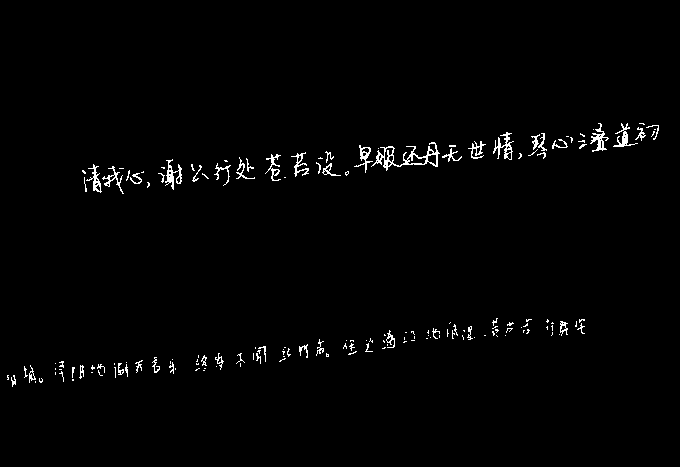 清我心,谢公行处苍苔没。早服还丹无世情,琴心三叠道初
浔阳地僻无音乐 终岁不闻丝竹声。住近湓江地低湿 黄芦苦竹绕宅